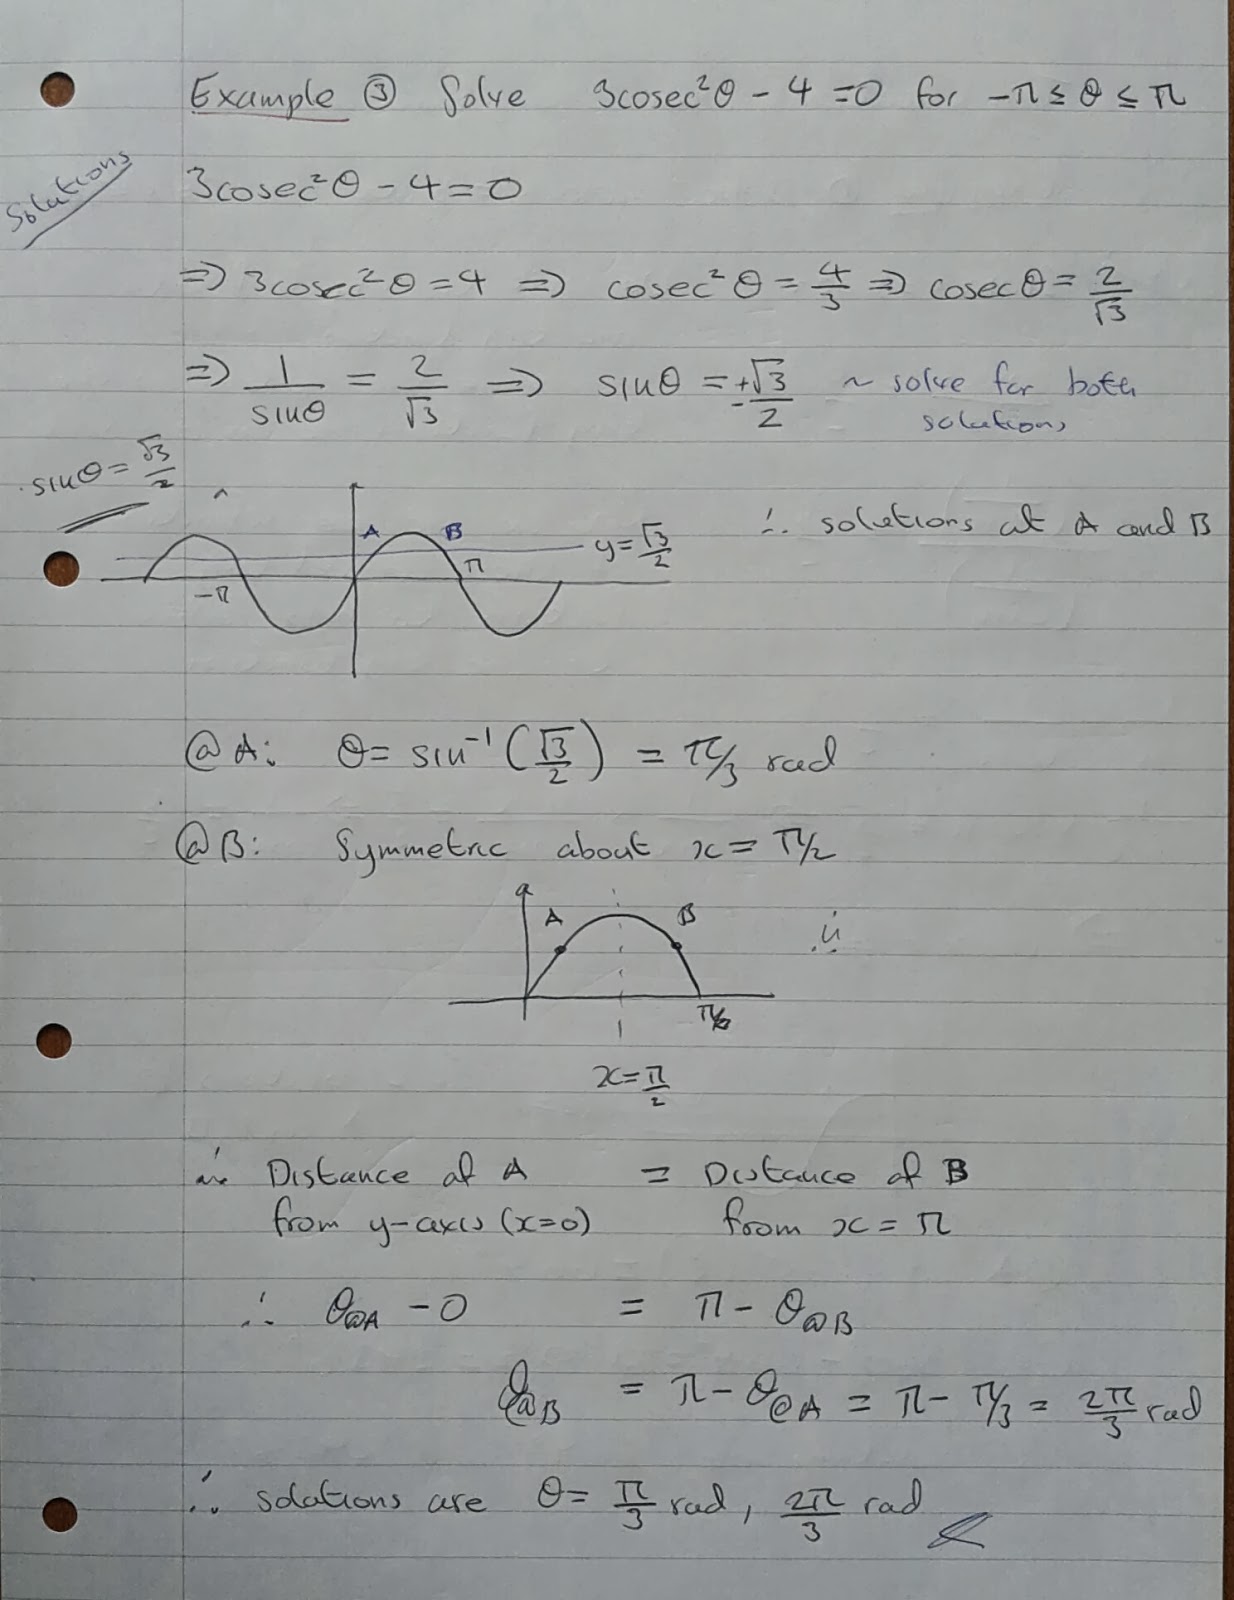 Example ③ Solve 3cosec²θ - 4 = 0 for -π ≤ θ ≤ π
Solutions
3cosec²θ - 4 = 0
⇒ 3cosec²θ = 4 ⇒ cosec²θ = 4/3 ⇒ cosecθ = 2/√3
⇒ 1/sinθ = 2/√3 ⇒ sinθ = ±√3/2 ~ solve for both
solutions
sinθ = √3/2
A B
y = √3/2
∴ solutions at A and B
-π π
@A: θ = sin⁻¹(√3/2) = π/3 rad
@B: Symmetric about x = π/2
A B
x = π/2
∴ Distance of A = Distance of B
from y-axis (x=0) from x = π
∴ θ@A - 0 = π - θ@B
θ@B = π - θ@A = π - π/3 = 2π/3 rad
∴ solutions are θ = π/3 rad, 2π/3 rad